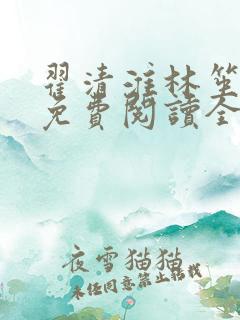 翟清淮林笙
免費閱讀全
夜雪猫猫
未经同意禁止转载